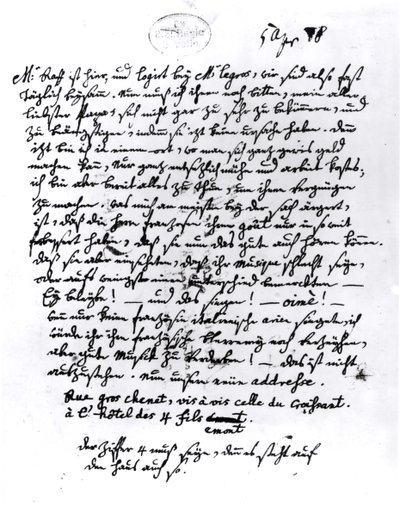 5 Apr 78
Mr: Raff ist hier, und logirt bey Mr: legros, wir sind also fast
täglich beysam̄. Nun muß ich ihnen noch bitten, mein aller
liebster Papa, sich nicht gar zu sehr zu bekümmern, und
zu beängstigen, indemm sie izt keine ursache haben. denn
izt bin ich in einem ort, wo man sich ganz gewis geld
machen kann, Nur ganz entsetzlich mühe und arbeit kostets,
ich bin aber bereit alles zu thun, um ihnen vergnügen
zu machen. was mich am meisten bey der sach ärgert,
ist, daß die herrn franzosen ihren goût nur in so weit
verbessert haben, daß sie nun das gute auch hören können.
daß sie aber einsehneten, daß ihre Musique schlecht seÿe,
oder aufs wenigst einen unterschied bemerckten —
Eÿ beleÿbe! — und das singen! — oimè! —
wenn nur keine französin italienische arien singete, ich
würde ihr ihre französische Plererey noch verzeÿhen,
aber gute Musick zu verderben! — das ist nicht
auszustehen. Nun unsere neüe addresse.
Rue gros chenet, vis à vis celle du Croißant.
à l'hôtel des 4 fils emont.
emont
der Ziffer 4 muß seÿn, denn es steht auf
dem haus auch so.